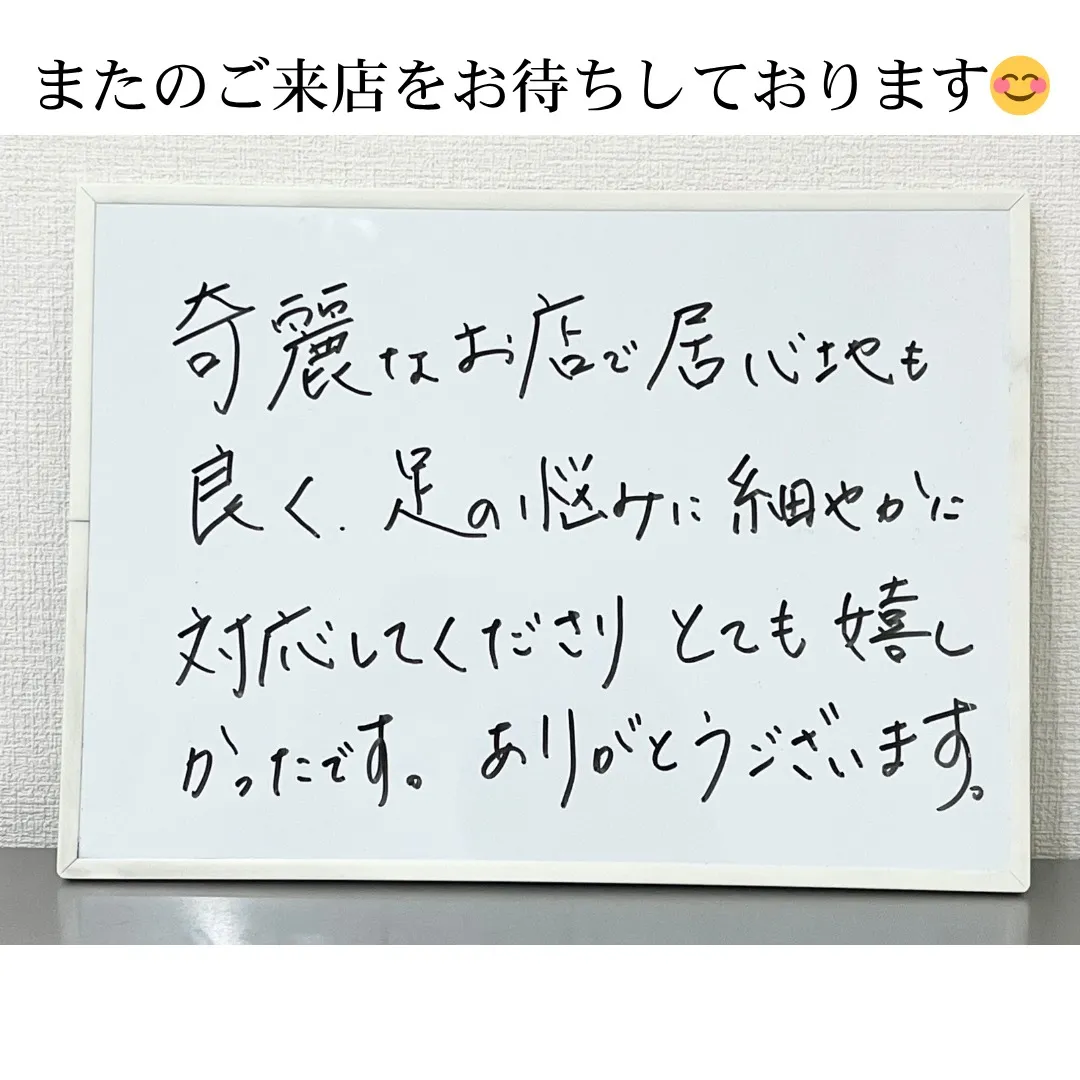 またのご来店をお待ちしております😊
奇麗なお店で居心地も
良く、足の悩みに細やかに
対応してくださり とても嬉し
かったです。 ありがとうございます。